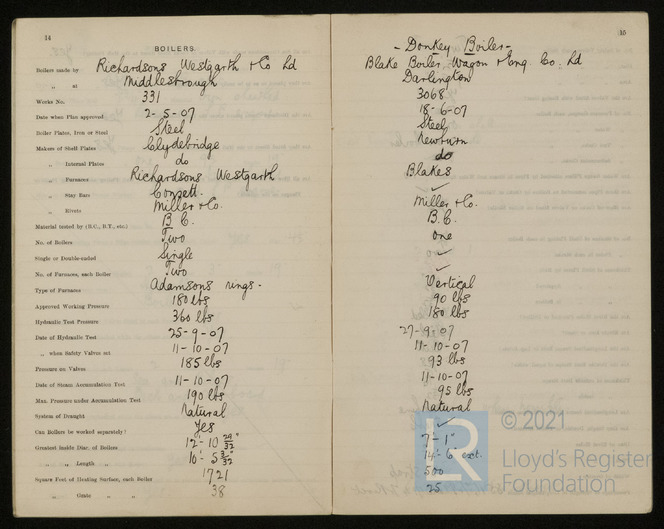 14
BOILERS.
Boilers made by Richardsons Westgarth & Co Ld
„ at Middlesbrough
Works No. 331
Date when Plan approved 2-5-07
Boiler Plates, Iron or Steel Steel
Makers of Shell Plates Clydebridge
„ Internal Plates do
„ Furnaces Richardsons Westgarth
„ Stay Bars Consett.
„ Rivets Miller & Co.
Material tested by (B.C., B.T., etc.) B.C.
No. of Boilers Two
Single or Double-ended Single
No. of Furnaces, each Boiler Two
Type of Furnaces Adamsons rings -
Approved Working Pressure 180 lbs
Hydraulic Test Pressure 360 lbs
Date of Hydraulic Test 25-9-07
„ when Safety Valves set 11-10-07
Pressure on Valves 185 lbs
Date of Steam Accumulation Test 11-10-07
Max. Pressure under Accumulation Test 190 lbs
System of Draught Natural
Can Boilers be worked separately? Yes
Greatest inside Diar. of Boilers 12'-10 29/32"
„ „ Length „ 10'-5 3/32"
Square Feet of Heating Surface, each Boiler 1721
„ Grate „ „ 38
15
- Donkey Boiler -
Blake Boiler, Wagon & Eng Co. Ld
Darlington
3068
18-6-07
Steel
Newburn
do
Blakes
✓
Miller & Co.
B.C.
one
✓
✓
Vertical
90 lbs
180 lbs
27-9-07
11-10-07
93 lbs
11-10-07
95 lbs
Natural
✓
7'-1"
14'-6 ext.
500
25
LR
© 2021
Lloyd's Register
Foundation